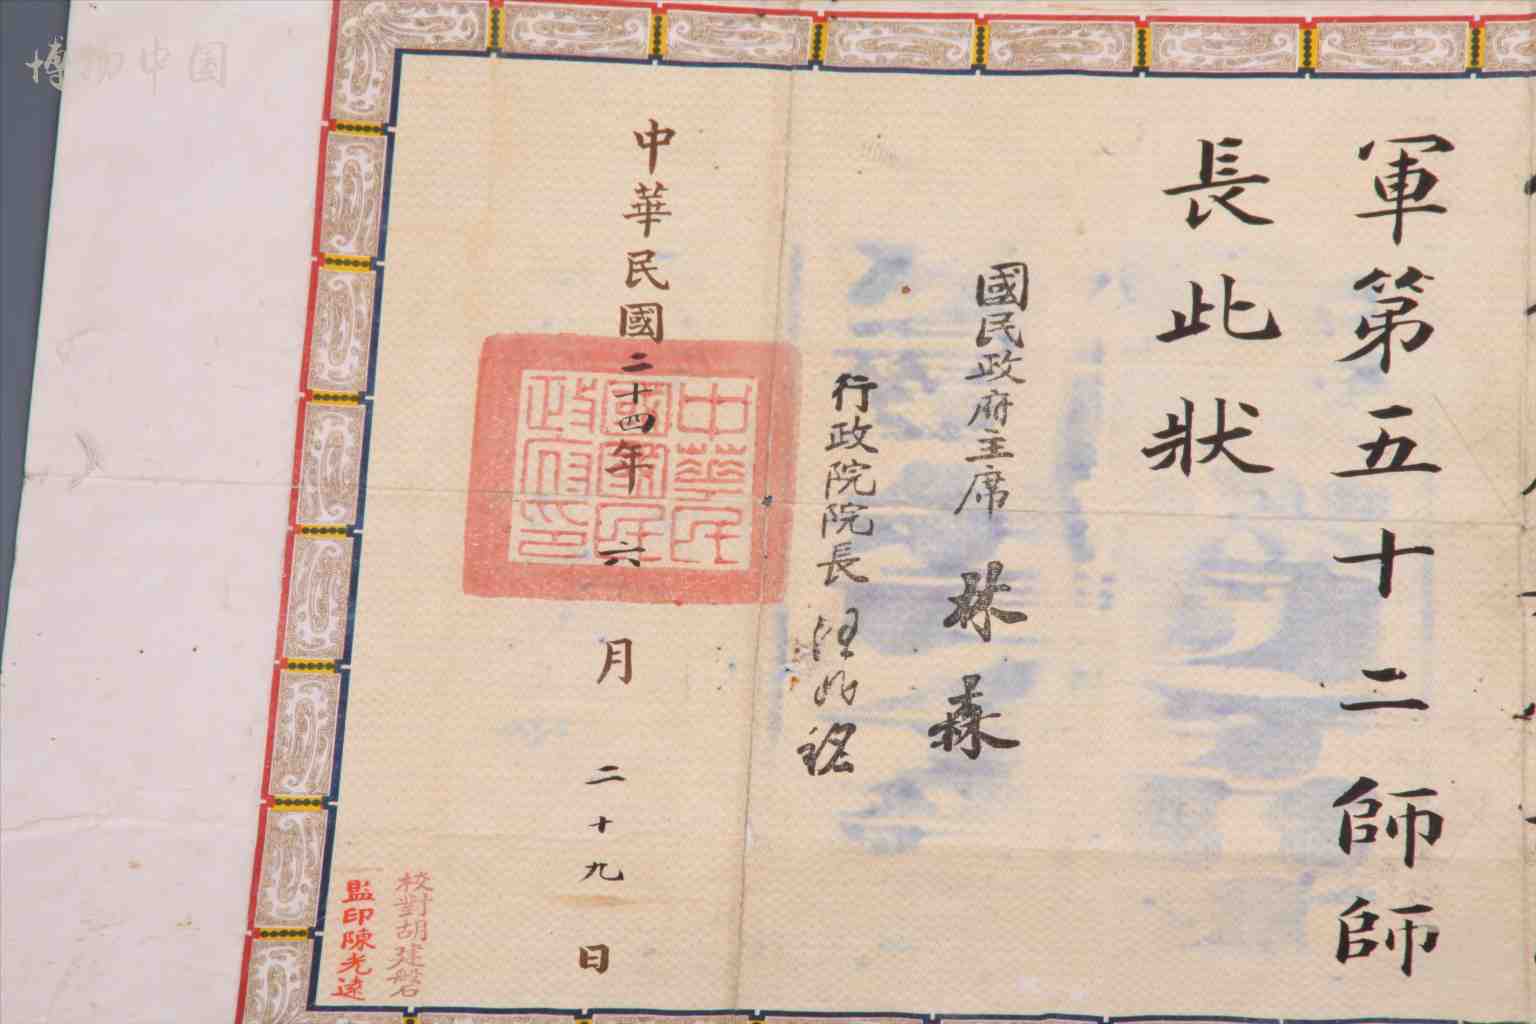 軍第五十二師師
長此狀
國民政府主席 林森
行政院院長 汪兆銘
中華民國二十四年六月二十九日
中華民國國民政府印
校對胡建磐
監印陳光遠
博物中国